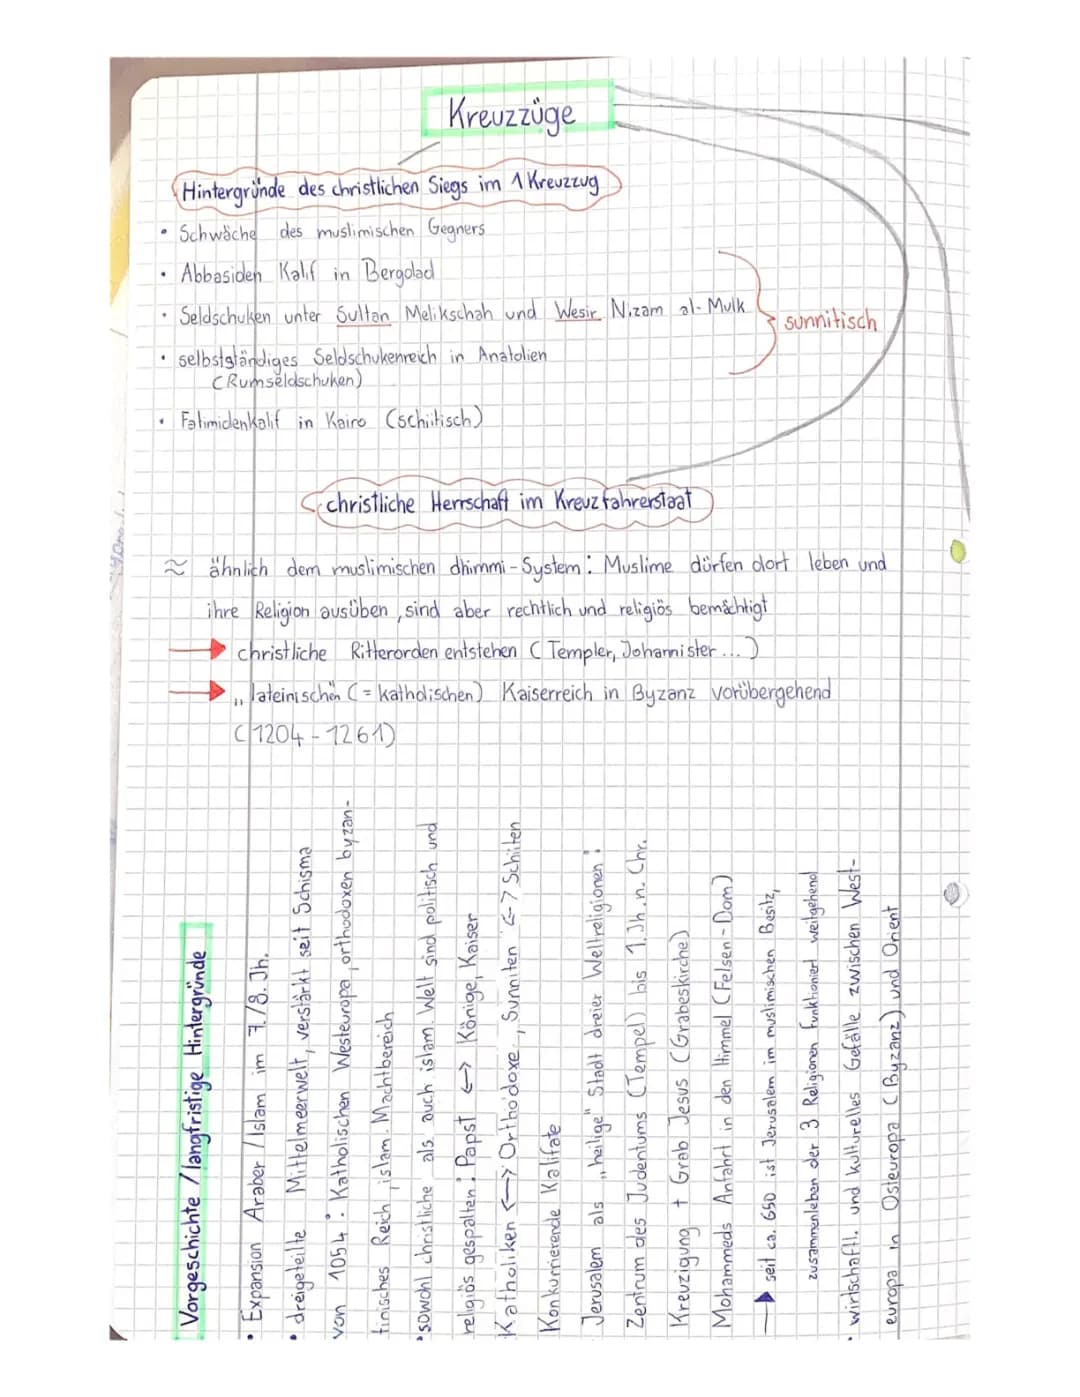 Kreuzzüge
Hintergründe des christlichen Siegs im 1 Kreuzzug
• Schwäche des muslimischen Gegners
• Abbasiden Kalif in Bergdad
• Seldschuken unter Sultan Melikschah und Wesir Nizam al-Mulk
sunnitisch
• selbstständiges Seldschukenreich in Anatolien
(Rumseldschuken)
• Fatimidenkalif in Kairo (schiitisch)
christliche Herrschaft im Kreuzfahrerstaat
≈ ähnlich dem muslimischen dhimmi-System: Muslime dürfen dort leben und
ihre Religion ausüben, sind aber rechtlich und religiös bemächtigt
christliche Ritterorden entstehen (Templer, Johannister...)
"lateinischen (= katholischen) Kaiserreich in Byzanz vorübergehend
(1204 - 1261)
Vorgeschichte / langfristige Hintergründe
• Expansion Araber / Islam im 7./8. Jh.
• dreigeteilte Mittelmeerwelt, verstärkt seit Schisma
von 1054: Katholischen Westeuropa, orthodoxen byzan-
tinisches Reich, islam. Machtbereich
• sowohl christliche als auch islam. Welt sind politisch und
religiös gespalten: Papst <-> Könige, Kaiser
Katholiken <-> Orthodoxe, Sunniten <-> Schiiten
Konkurrierende Kalifate
Jerusalem als "heilige" Stadt dreier Weltreligionen:
Zentrum des Judeniums (Tempel) bis 1. Jh. n. Chr.
Kreuzigung + Grab Jesus (Grabeskirche)
Mohammeds Anfahrt in den Himmel (Felsen-Dom)
→ seit ca. 650 ist Jerusalem im muslimischen Besitz,
zusammenleben der 3 Religionen funktioniert weitgehend
• wirtschaftl. und kulturelles Gefälle zwischen West-
europa in Osteuropa (Byzanz) und Orient